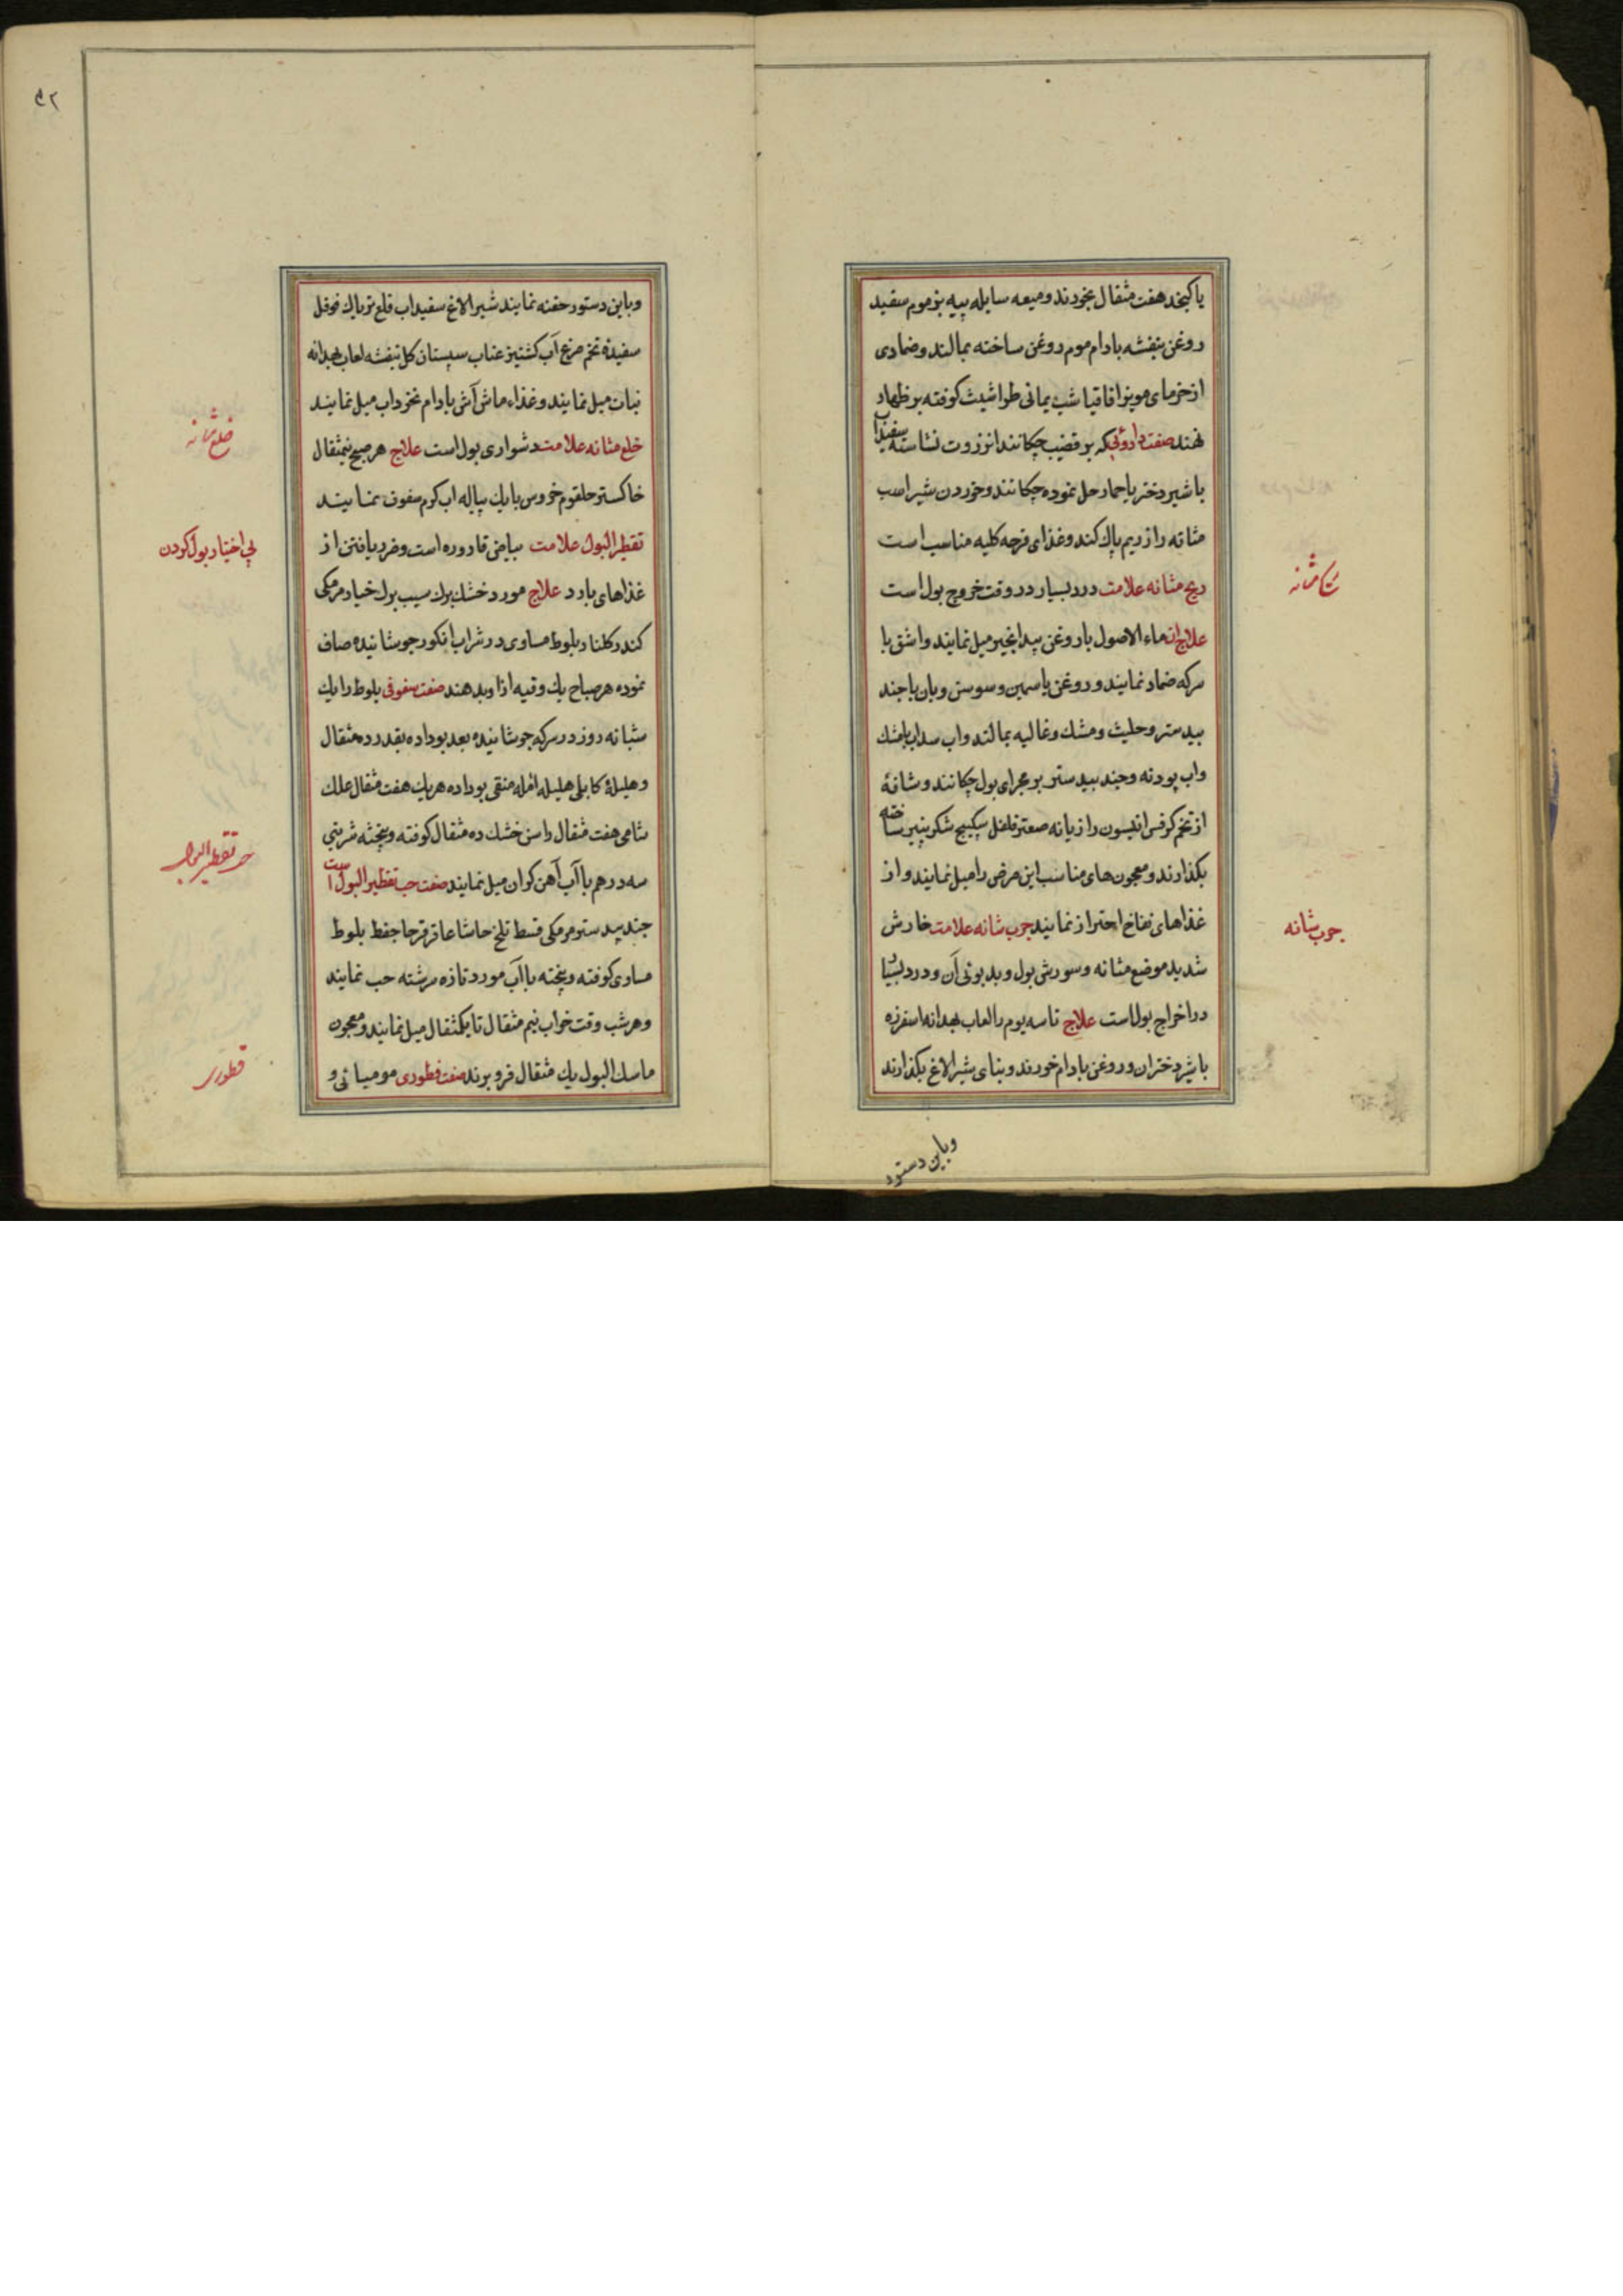 یا کنجد هفت مثقال بخورند و میعه سایله پیه بز موم سفید
روغن بنفشه بادام موم روغن ساخته بمالند و ضمادی
از خرمای مویز اقاقیا شب یمانی طراشیث کوفته بر ظهار
نهند صفت داروئی که بر قضیب چکانند انزروت نشاسته سفیداب
با شیر دختر یا حمار حل نموده چکانند و خوردن شیر اسب
مثانه را از ریم پاک کند و غذای قرحه کلیه مناسب است
ریح مثانه علامت درد بسیار در وقت خروج بول است
ریح مثانه
علاج ان ماء الاصول با روغن بیدانجیر میل نمایند و اشق با
سرکه ضماد نمایند و روغن یاسمین و سوسن و بان با جند
بیدستر و حلیث و مشک و غالیه بمالند و اب سداب با مشک
و اب پودنه و جند بیدستر بر مجرای بول چکانند و شافهٔ
از تخم کرفس انیسون رازیانه صعتر فلفل سکبینج شکر پنیر ساخته
بکذارند و معجون های مناسب این مرض را میل نمایند و از
غذاهای نفاخ احتراز نمایند جرب مثانه علامت خارش
جرب مثانه
شدید موضع مثانه و سورش بول و بدبوئی آن و درد بسیار
در اخراج بولست علاج تا سه یوم با لعاب بهدانه اسفرزه
با شیر دختران و روغن بادام خورند و بنای بشیر الاغ بکذارند
و باین دستور
۹۲
و باین دستور حقنه نمایند شیر الاغ سفیداب قلع تریاک فوفل
سفیدهٔ تخم مرغ آب کشنیز عناب سپستان کل بنفشه لعاب بهدانه
نبات میل نمایند و غذاء ماش آش بادام نخوداب میل نمایند
خلع مثانه علامت دشواری بول است علاج هر صبح نیمثقال
خلع مثانه
خاکستر حلقوم خروس با یک پیاله اب کرم سفوف نمایند
تقطیر البول علامت بیاض قاروره است و ضرر یافتن از
بی اختیار بول کردن
غذاهای بارد علاج مورد خشک برک سیب برک خیار مرمکی
کندر کلنار بلوط مساوی در شراب انکور جوشانیده صاف
نموده هر صباح یک وقیه ازا و بدهند صفت سفوفی بلوط را یک
شبانه روز در سرکه جوشانیده بعد بوداده بقدر ده مثقال
و هلیلهٔ کابلی هلیله امله منقی بوداده هر یک هفت مثقال علک
شامی هفت مثقال راسن خشک ده مثقال کوفته و بیخته شربتی
سه درهم با آب آهن کران میل نمایند صفت حب تقطیر البول است
حب تقطیر البول
جند بیدستر مرمکی قسط تلخ حاشا عاقرقرحا جفط بلوط
مساوی کوفته و بیخته با آب مورد تازه سرشته حب نمایند
و هر شب وقت خواب نیم مثقال تا یکمثقال میل نمایند و معجون
ماسک البول یک مثقال فرو برند صفت قطوری مومیائی و
قطوری